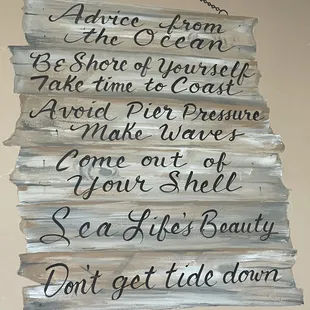 Advice from
the Ocean
Be Shore of Yourself
Take time to Coast
Avoid Pier Pressure
Make Waves
Come out of
Your Shell
Sea Life's Beauty
Don't get tide down